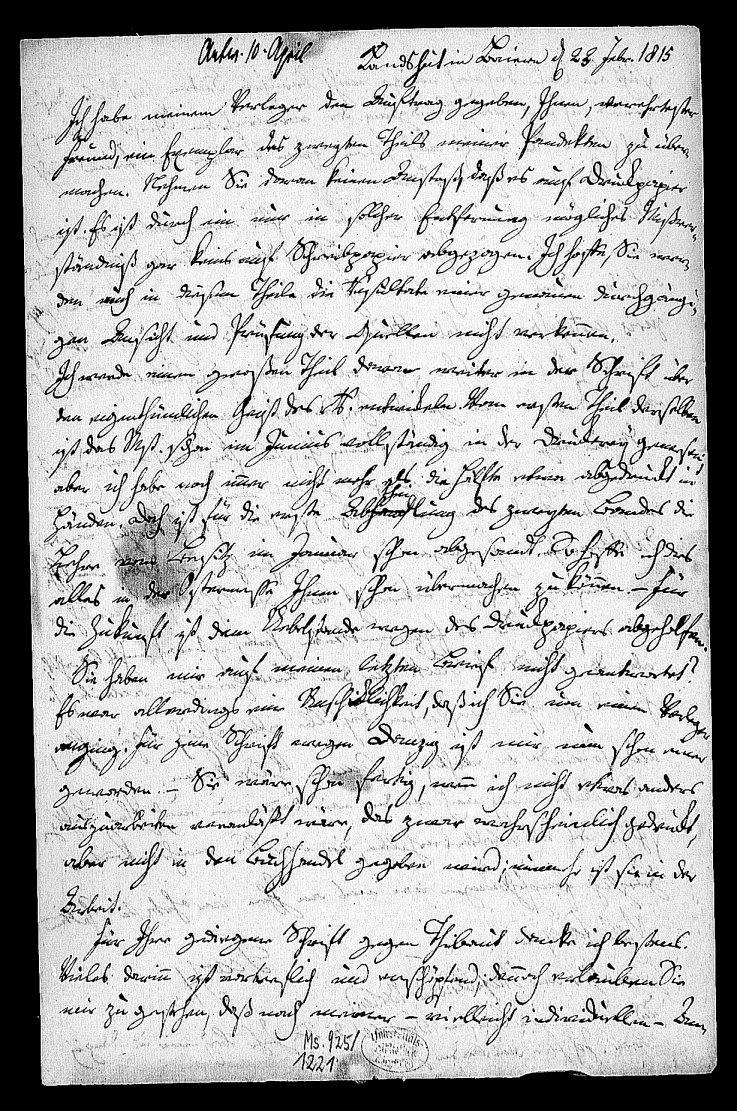 Antw. 10. April
Landshut in Baiern d 22 Febr. 1815
Ich habe meinem Verleger den Auftrag gegeben, Ihnen, verehrtester
Freund, ein Exemplar des zweyten Theils meiner Pandekten zu über-
machen. Nehmen Sie daran keinen Anstoß, daß es auf Druckpapier
ist. Es ist durch ein nur in solcher Entfernung mögliches Mißver-
ständniß gar keins auf Schreibpapier abgezogen. Ich hoffe, Sie wer-
den auch in diesem Theile die Resultate einer genauen durchgängi-
gen Ansicht und Prüfung der Quellen nicht verkennen.
Ich werde einen großen Theil davon weiter in der Schrift über
den eigenthümlichen Geist des entwickeln. Vom ersten Theil derselben
ist das Mst. schon im Junius vollständig in der Druckerey gewesen;
aber ich habe noch immer nicht mehr als die Hälfte etwa abgedruckt in
Händen. Doch ist für die erste Abhandlung des zweyten Bandes die
von Leipzig im Januar schon abgesandt. So hoffe ich dies
alles in der Ostermesse Ihnen schon übermachen zu können. – Für
die Zukunft ist dem Uebelstande wegen des Druckpapiers abgeholfen.
Sie haben mir auf meinen letzten Brief nicht geantwortet?
Es war allerdings eine Unschicklichkeit, daß ich Sie um einen Verleger
anging. Für jene Schrift wegen Danzig ist mir nun schon einer
geworden. – Sie wäre schon fertig, wenn ich nicht etwas anders
auszuarbeiten veranlaßt wäre, das zwar wahrscheinlich gedruckt,
aber nicht in den Buchhandel gegeben wird; nunmehr ist sie in der
Arbeit.
Für Ihre gediegene Schrift gegen Thibaut danke ich bestens.
Vieles darinn ist vortreflich und erschöpfend; dennoch erlauben Sie
mir zu gestehen, daß nach meiner – vielleicht individuellen – An-
Ms. 925/
1221